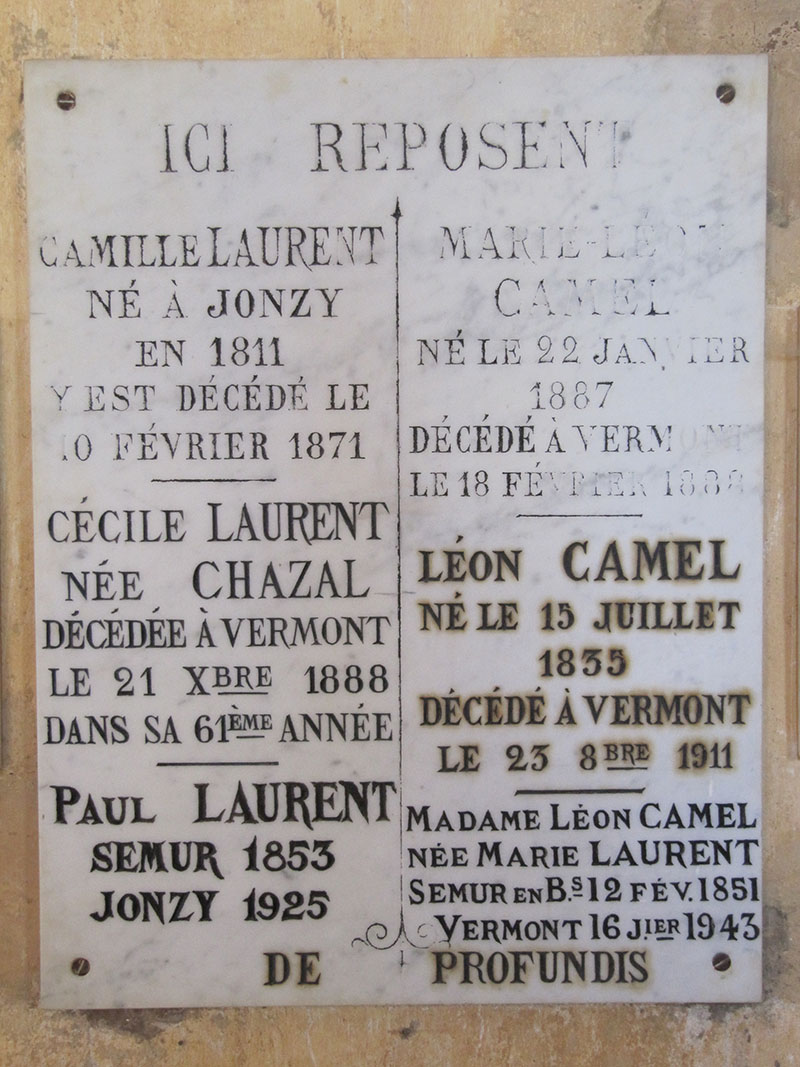 ICI REPOSENT
CAMILLE LAURENT
NÉ À JONZY
EN 1811
Y EST DÉCÉDÉ LE
10 FÉVRIER 1871
CÉCILE LAURENT
NÉE CHAZAL
DÉCÉDÉE À VERMONT
LE 21 XBRE 1888
DANS SA 61ÈME ANNÉE
PAUL LAURENT
SEMUR 1853
JONZY 1925
MARIE-LÉON
CAMEL
NÉ LE 22 JANVIER
1887
DÉCÉDÉ À VERMONT
LE 18 FÉVRIER 1888
LÉON CAMEL
NÉ LE 15 JUILLET
1835
DÉCÉDÉ À VERMONT
LE 23 8BRE 1911
MADAME LÉON CAMEL
NÉE MARIE LAURENT
SEMUR EN B.S 12 FÉV. 1851
VERMONT 16 J.IER 1943
DE PROFUNDIS